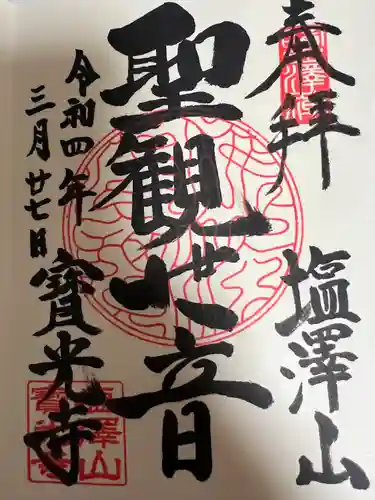 奉拝
塩澤山
聖観世音
令和四年
三月廿七日
寳光寺
塩澤山
寳光寺